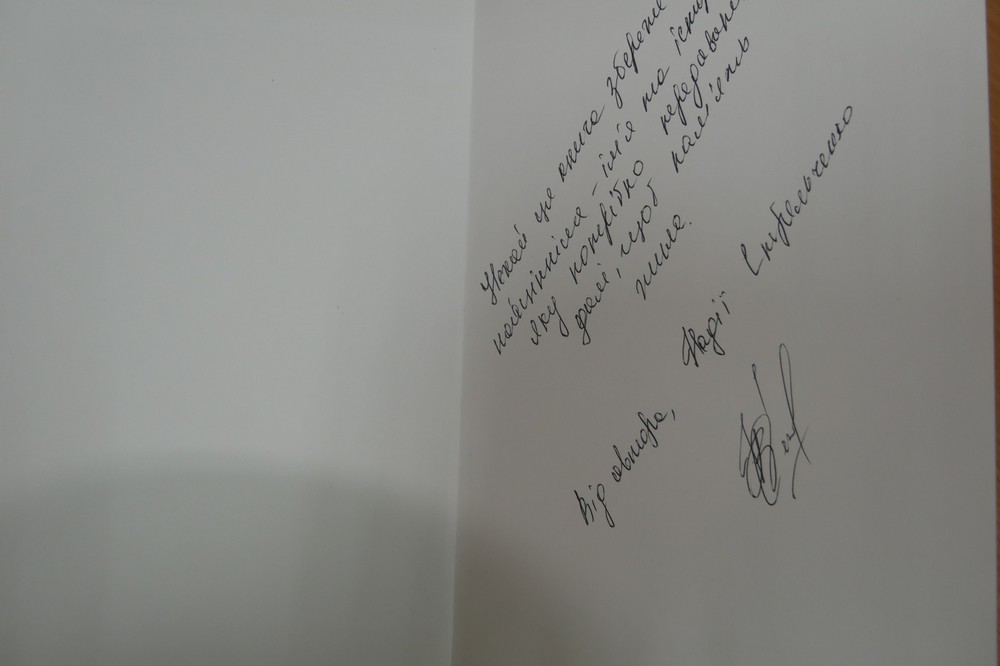 Нехай ця книга збереже
найцінніше - ім'я та
яку потрібно передавати
далі, щоб пам'ять
жила.
Від автора, Надії